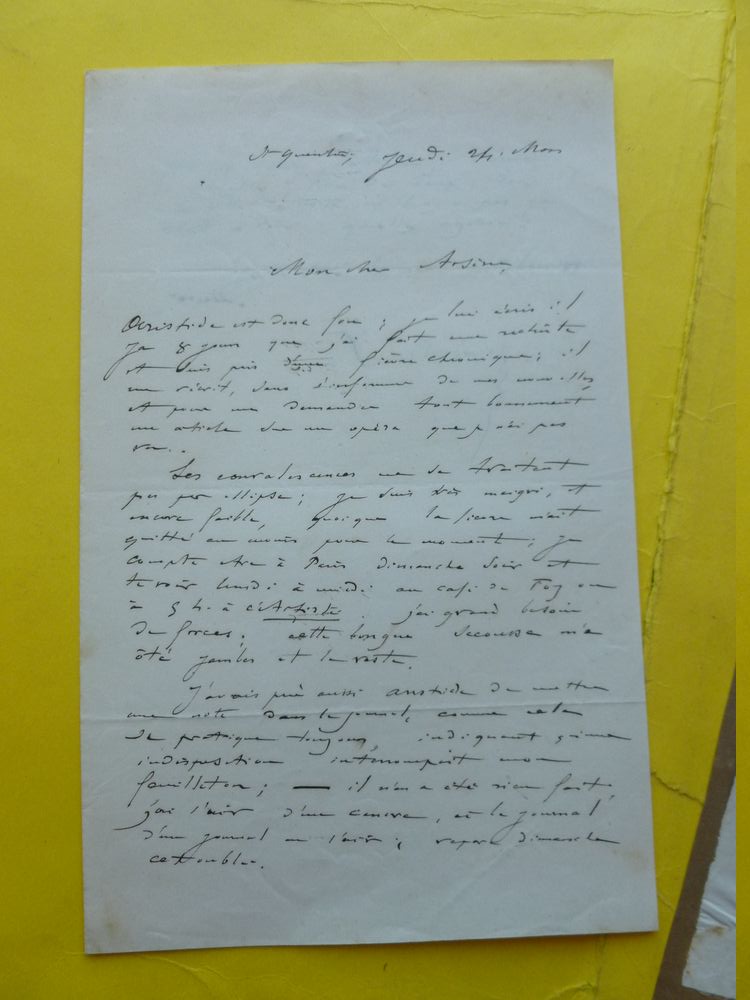 St Quentin, Jeudi 24. Mars
Mon cher Arsène,
Aristide est donc fou ; je lui écris il
y a 8 jours que j'ai fait une rechûte
et suis pris d'une fièvre chronique ; il
me récrit, sans s'informer de mes nouvelles
et pour me demander tout bonnement
un article sur un opéra que je n'ai pas
vu..
Les convalescences ne se traitent
pas par ellipse ; je suis très maigri, et
encore faible, quoique la fièvre m'ait
quitté au moins pour le moment ; je
compte être à Paris dimanche soir et
te voir lundi à midi au café de Foy ou
à 5 h. à l'Artiste j'ai grand besoin
de forces. cette longue secousse m'a
ôté jambes et le reste.
J'avais prié aussi aristide de mettre
une note dans le journal, comme cela
se pratique toujours, indiquant qu'une
indisposition interrompait mon
feuilleton ; — il n'en a été rien fait,
j'ai l'air d'un cancre, et le journal
d'un journal en l'air ; répare dimanche
cet oubli.